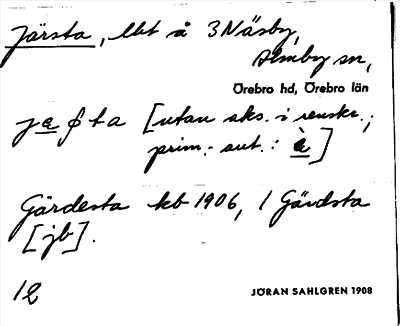 Järsta, lht å 3 Näsby,
Almby sn,
Örebro hd, Örebro län
jæ ta [utan aks. i renskr.;
prim.-ant.: è]
Gärdesta kb 1906, 1 Gärdsta
[jb].
12
JÖRAN SAHLGREN 1908